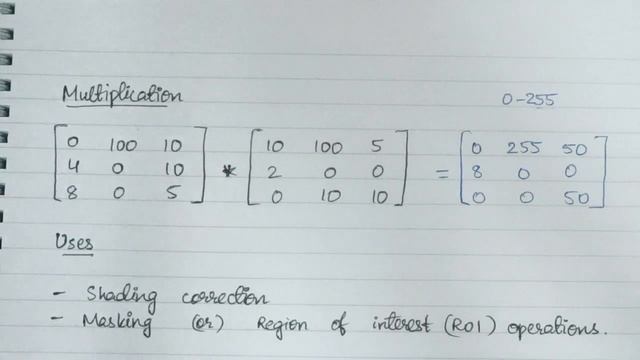 Multiplication 0-255
[0 100 10] [10 100 5] [0 255 50]
[4 0 10] * [2 0 0] = [8 0 0]
[8 0 5] [0 10 10] [0 0 50]
Uses
- Shading correction
- Masking (or) Region of interest (ROI) operations.